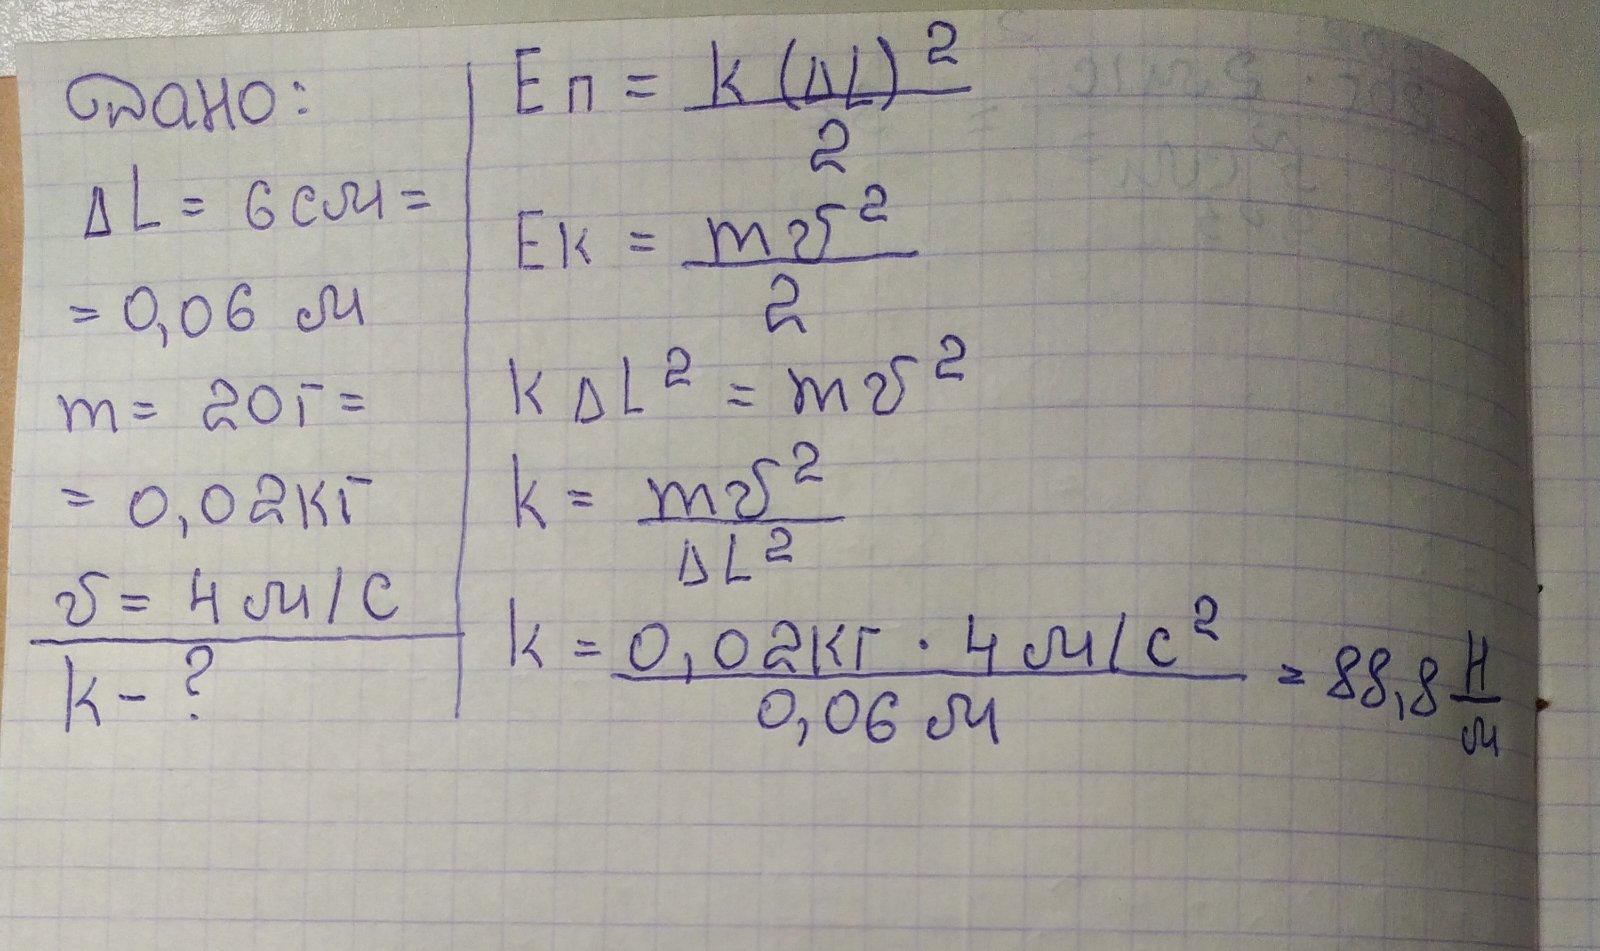 Дано:
ΔL = 6 см =
= 0,06 м
m = 20г =
= 0,02кг
v = 4 м/с
k - ?
Eп = k (ΔL)² / 2
Eк = mv² / 2
kΔL² = mv²
k = mv² / ΔL²
k = 0,02кг · 4 м/с² / 0,06 м = 88,8 Н/м